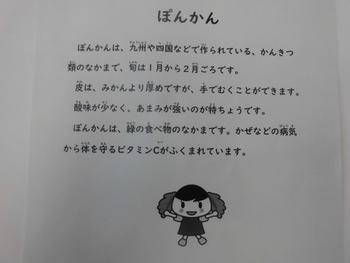 ぽんかん
ぽんかんは、九州や四国などで作られている、かんきつ
類のなかまで、旬は1月から2月ごろです。
皮は、みかんより厚めですが、手でむくことができます。
酸味が少なく、あまみが強いのが特ちょうです。
ぽんかんは、緑の食べ物のなかまです。かぜなどの病気
から体を守るビタミンCがふくまれています。